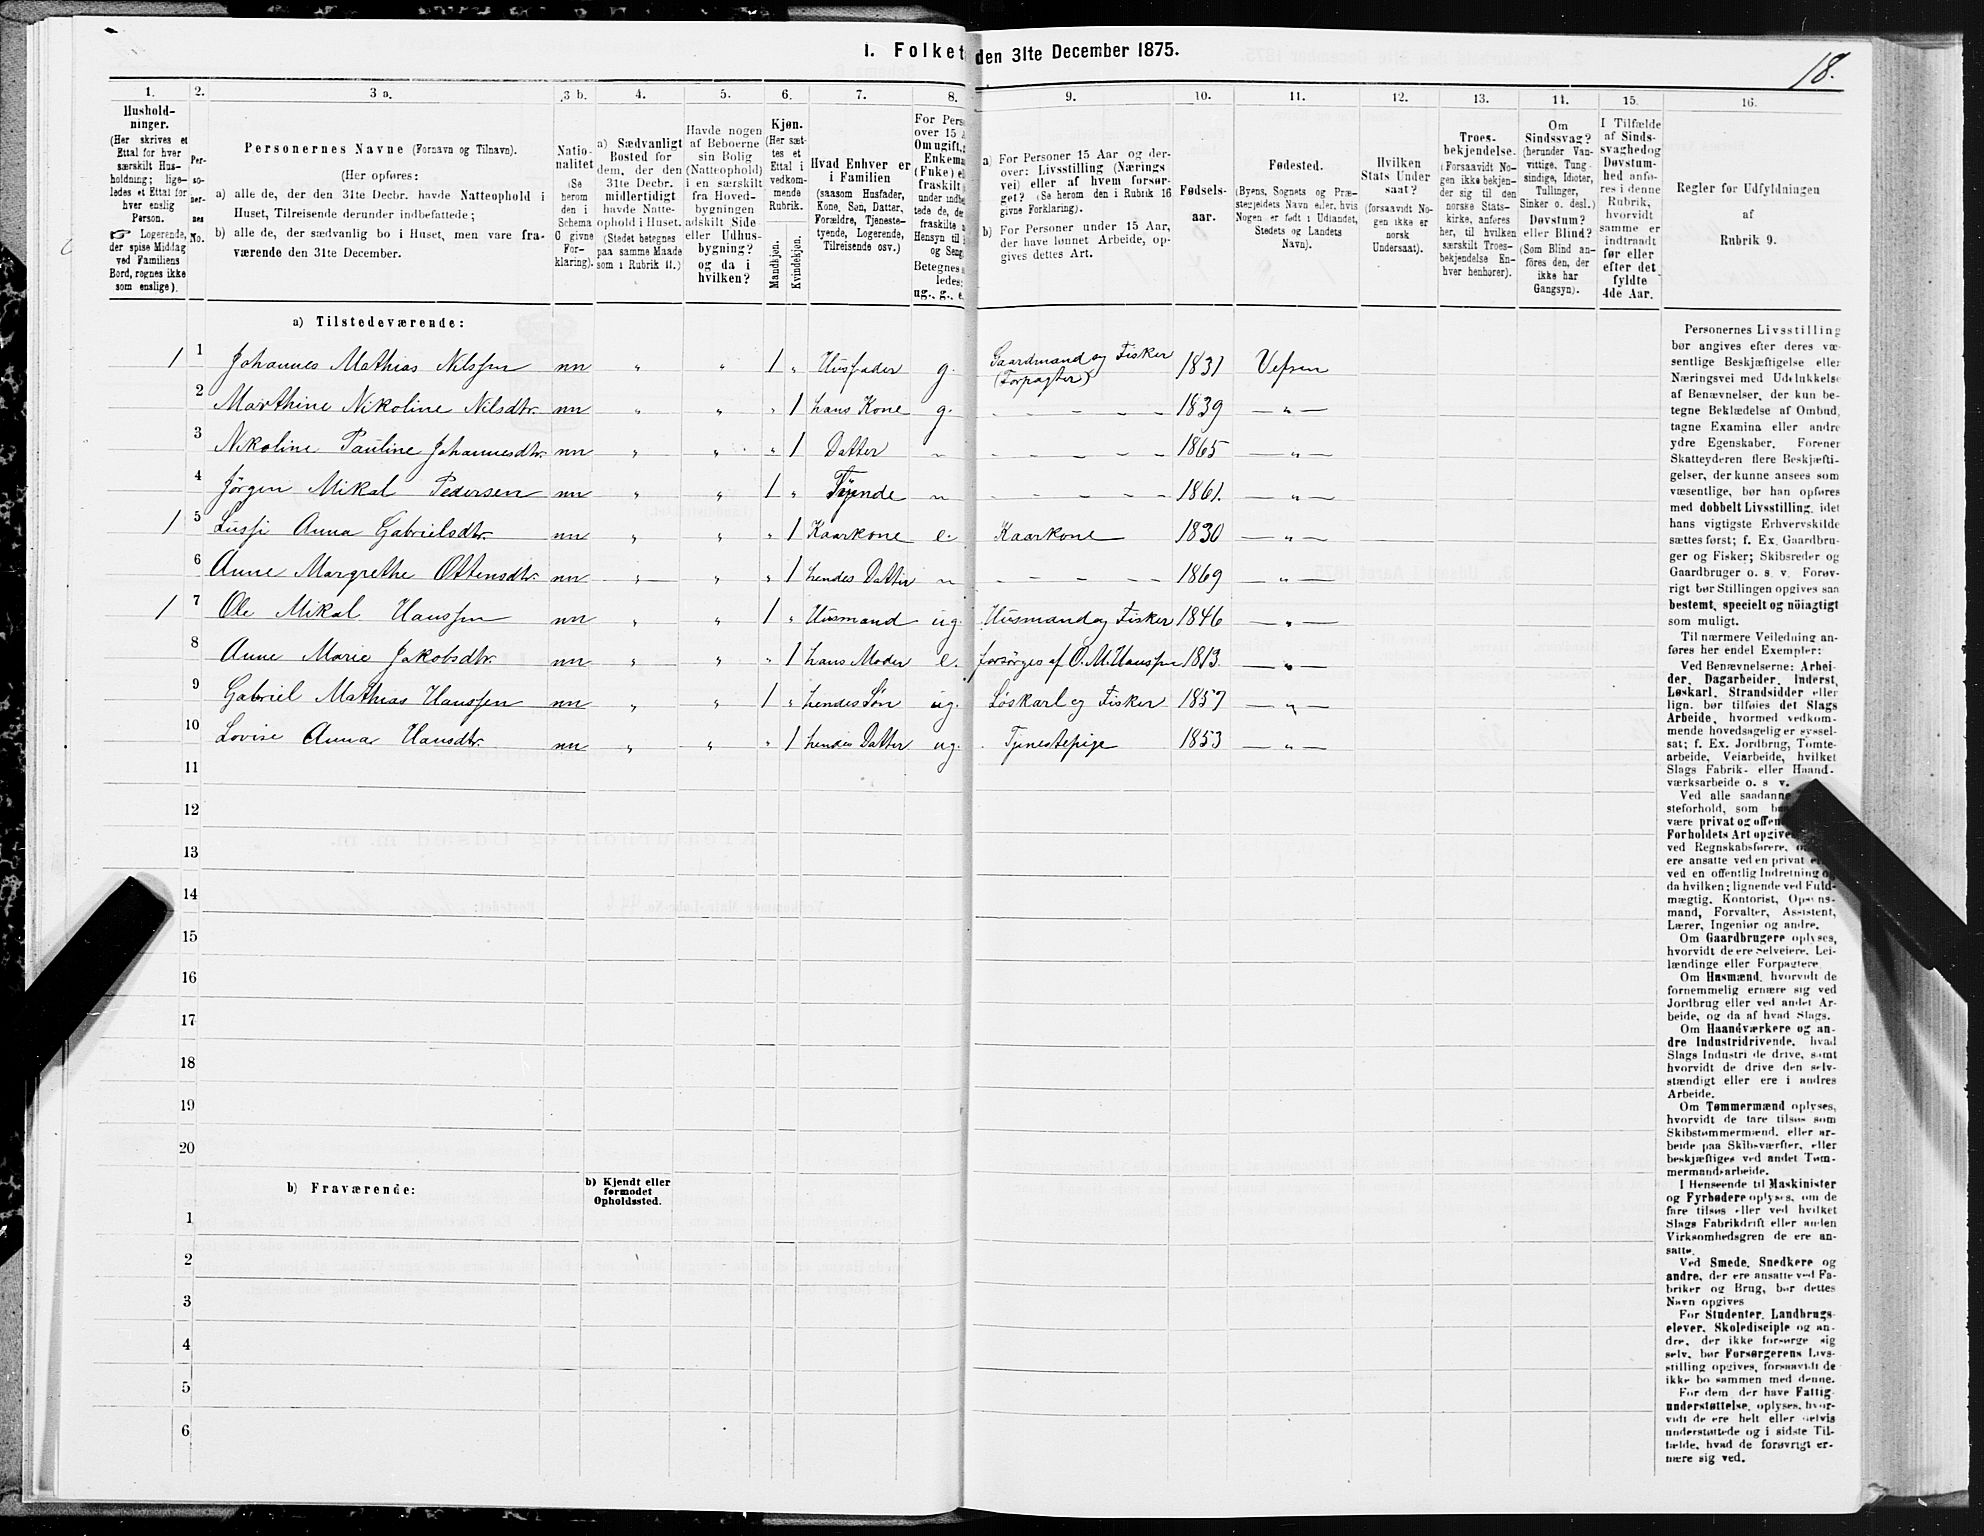 I. Folket den 31te December 1875.
18.
1. 2. 3 a. 3 b. 4. 5. 6. 7. 8. 9. 10. 11. 12. 13. 14. 15. 16.
Hushold-
ninger.
(Her skrives et
Ettal for hver
særskilt Hus-
holdning; lige-
ledes et Ettal for
hver enslig
Person.
☞ Logerende,
der spise Middag
ved Familiens
Bord, regnes ikke
som enslige).
Per-
so-
ner-
nes
No.
Personernes Navne (Fornavn og Tilnavn).
(Her opføres:
a) alle de, der den 31te Decbr. havde Natteophold i
Huset, Tilreisende derunder indbefattede;
b) alle de, der sædvanlig bo i Huset, men vare fra-
værende den 31te December.
Natio-
nalitet
(Se
herom
den i
Schema
C givne
For-
klaring).
a) Sædvanligt
Bosted for
dem, der den
31te Decbr.
midlertidigt
havde Natte-
ophold i Huset.
(Stedet betegnes
paa samme Maade
som i Rubrik 11.)
Havde nogen
af Beboerne
sin Bolig
(Natteophold)
i en særskilt
fra Hoved-
bygningen
adskilt Side
eller Udhus-
bygning?
og da i
hvilken?
Kjøn.
(Her sæt-
tes et
Ettal i
vedkom-
mende
Rubrik.
Mandkjøn.
Kvindekjøn.
Hvad Enhver er
i Familien
(saasom Husfader,
Kone, Søn, Datter,
Forældre, Tjeneste-
tyende, Logerende,
Tilreisende osv.)
For Pers
over 15
Om ugift,
Enkema
(Fuke) el
fraskilt
under indbe
tede de, der
fraskilte
Hensyn til
og Seng
Betegnes
ledes:
ug., g., e.
a) For Personer 15 Aar og der-
over: Livsstilling (Nærings
vei) eller af hvem forsør-
get? (Se herom den i Rubrik 16
givne Forklaring).
b) For Personer under 15 Aar,
der have lønnet Arbeide, op-
gives dettes Art.
Fødsels-
aar.
Fødested.
(Byens, Sognets og Præ-
stegjeldets Navn eller, hvis
Nogen er født i Udlandet,
Stedets og Landets
Navn).
Hvilken
Stats Under
saat?
(forsaavidt No-
gen ikke er
norsk
Undersaat).
Troes-
bekjendelse.
(Forsaavidt No-
gen ikke bekjen-
der sig til den
norske Stats-
kirke, anføres
her, til hvilken
særskilt Troes-
bekjendelse En-
hver henhører).
Om
Sindssvag?
(herunder Van-
vittige, Tung-
sindige, Idioter,
Tullinger,
Sinker o. desl.)
Døvstum?
eller Blind?
(Som Blind an-
føres den, der
ikke har
Gangsyn).
I Tilfælde
af Sinds-
svaghed og
Døvstum-
hed anfø-
res i denne
Rubrik,
hvorvidt
samme er
indtraadt
før eller
efter det
fyldte
4de Aar.
Regler for Udfyldningen
af
Rubrik 9.
a) Tilstedeværende:
1 1 Johannes Mathias Nilssen nn „ „ 1 „ Husfader g. Gaardmand og Fisker (Forpagter) 1831 Vefsen
2 Marthine Nikoline Nilsdtr. nn „ „ „ 1 hans Kone g. - - - - - 1839 — „ —
3 Nikoline Pauline Johannesdtr. nn „ „ „ 1 Datter „ - - - - - 1865 — „ —
4 Jørgen Mikal Pedersen nn „ „ 1 „ Tyende „ - - - - - 1861. — „ —
1 5 Lussi Anna Gabrielsdtr. nn „ „ „ 1 Kaarkone e. Kaarkone 1830 — „ —
6 Anne Margrethe Ottensdtr. nn „ „ „ 1 hendes Datter „ - - - - - 1869 — „ —
1 7 Ole Mikal Hanssen nn „ „ 1 „ Husmand ug. Husmand og Fisker 1846 — „ —
8 Anne Marie Jakobsdtr. nn „ „ „ 1 hans Moder e. forsørges af O. M. Hanssen 1813. — „ —
9 Gabriel Mathias Hanssen nn „ „ 1 „ hendes Søn ug. Løskarl og Fisker 1857 — „ —
10 Lovise Anna Hansdtr. nn „ „ „ 1 hendes Datter ug. Tjenestepige 1853 — „ —
11
12
13
14
15
16
17
18
19
20
b) Fraværende:
b) Kjendt eller
formodet
Opholdssted.
1
2
3
4
5
6
Personernes Livsstilling
bør angives efter deres væ-
sentlige Beskjæftigelse eller
Næringsvei med Udelukkelse
af Benævnelser, der kun be-
tegne Beklædelse af Ombud,
tagne Examina eller andre
ydre Egenskaber. Forener
Skatteyderen flere Beskjæfti-
gelser, der kunne ansees som
væsentlige, bør han opføres
med dobbelt Livsstilling, idet
hans vigtigste Erhvervskilde
sættes først; f. Ex. Gaardbru-
ger og Fisker; Skibsreder og
Gaardbruger o. s. v. Forøv-
rigt bør Stillingen opgives saa
bestemt, specielt og nøiagtigt
som muligt.
Til nærmere Veiledning an-
føres her endel Exempler:
Ved Benævnelserne: Arbei-
der, Dagarbeider, Inderst,
Løskarl, Strandsidder eller
lign. bør tilføies det Slags
Arbeide, hvormed vedkom-
mende hovedsagelig er syssel-
sat; f. Ex. Jordbrug, Tomte-
arbeide, Veiarbeide, hvilket
Slags Fabrik- eller Haand-
værksarbeide o. s. v.
Ved alle saadanne
steforhold, som
være privat og offen
Forholdets Art opgives
ved Regnskabsførere,
ere ansatte ved en privat
ved en offentlig Indretning og
da hvilken; lignende ved Fuld-
mægtig, Kontorist, Opsyns-
mand, Forvalter, Assistent,
Lærer, Ingeniør og andre.
Om Gaardbrugere oplyses,
hvorvidt de ere Selveiere, Lei-
lændinge eller Forpagtere.
Om Husmænd, hvorvidt de
fornemmelig ernære sig ved
Jordbrug eller ved andet Ar-
beide, og da af hvad Slags.
Om Haandværkere og an-
dre Industridrivende, hvad
Slags Industri de drive, samt
hvorvidt de drive den selv-
stændigt eller ere i andres
Arbeide.
Om Tømmermænd oplyses,
hvorvidt de fare tilsøs som
Skibstømmermænd, eller ar-
beide paa Skibsværfter, eller
beskjæftiges ved andet Tøm-
mermandsarbeide.
I Henseende til Maskinister
og Fyrbødere oplyses, om de
fare tilsøs eller ved hvilket
Slags Fabrikdrift eller anden
Virksomhedsgren de ere an-
satte.
Ved Smede, Snedkere og
andre, der ere ansatte ved Fa-
briker og Brug, bør dettes
Navn opgives
For Studenter, Landbrugs-
elever, Skoledisciple og an-
dre, der ikke forsørge sig
selv, bør Forsørgerens Livs-
stilling opgives, forsaavidt de
ikke bo sammen med denne.
For dem, der have Fattig-
understøttelse, oplyses, hvor-
vidt de ere helt eller delvis
understøttede og i sidste Til-
fælde, hvad de forøvrigt er-
nære sig ved.